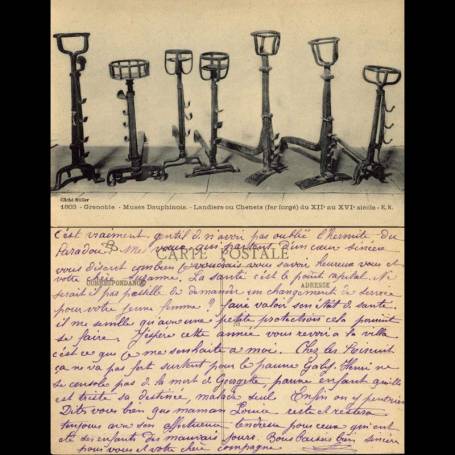 Cliché Müller
1803 - Grenoble - Musée Dauphinois. - Landiers ou Chenets (fer forgé) du XIIᵉ au XVIᵉ siècle - E.R.
C'est vraiment gentil d'n'avoir pas oublié l'hermite du
Paradou. Mes vœux qui partent d'un cœur sincère
CARTE POSTALE
vous disent combien je voudrais vous savoir heureux vous et
votre chère Suzanne. La santé c'est le point capital. Ne
CORRESPONDANCE
ADRESSE
serait il pas possible de demander un changement de service
pour votre jeune femme ? faire valoir son état de santé
il me semble qu'avec une petite protection cela pourrait
se faire. J'espère cette année vous revoir à la villa
c'est ce que je me souhaite à moi. Chez les
ça ne va pas fort surtout pour le pauvre Gaby. Henri ne
se console pas de la mort de Georgette, pauvre enfant qu'elle
est triste sa destinée, malade seul. Enfin on y
Dites vous bien que maman Louise est et restera
toujours avec son affectueuse tendresse pour ceux qui ont
été ses enfants des mauvais jours. Bons baisers bien sincères
pour vous et votre chère compagne